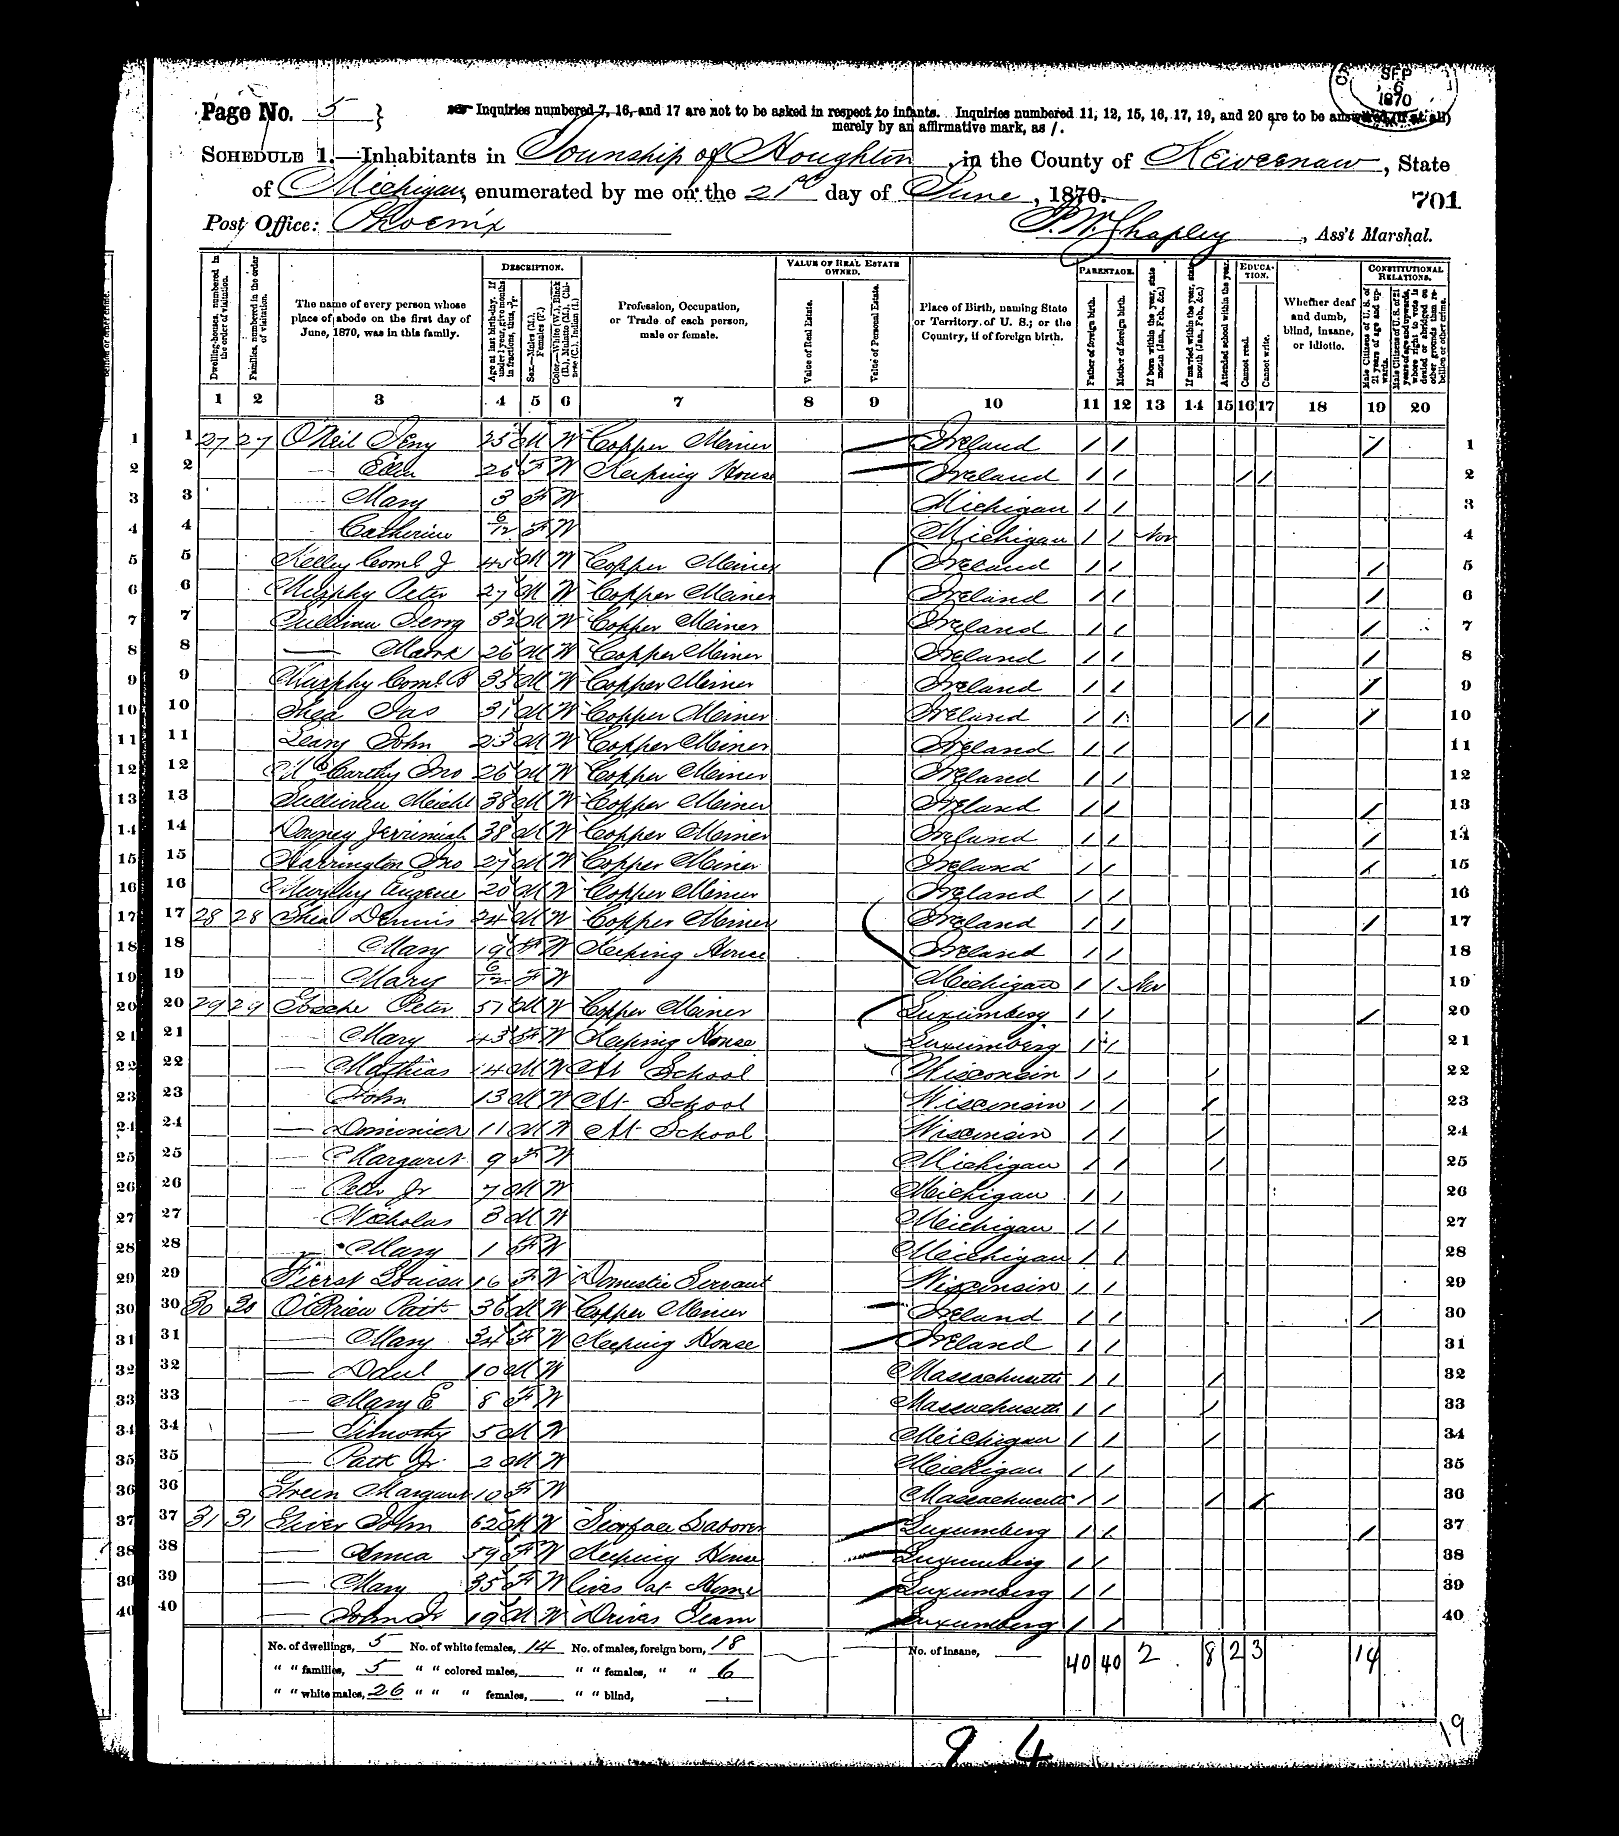 Page No. 5 }
Inquiries numbered 7, 16, and 17 are not to be asked in respect to infants. Inquiries numbered 11, 12, 15, 16, 17, 19, and 20 are to be answered (if at all)
merely by an affirmative mark, as /.
SEP
6
1870
SCHEDULE 1.—Inhabitants in Township of Houghton, in the County of Keweenaw, State
of Michigan, enumerated by me on the 21st day of June, 1870.
701
Post Office: Phoenix
P. W. Shapley, Ass't Marshal.
DESCRIPTION. VALUE OF REAL ESTATE OWNED. PARENTAGE. EDUCATION. CONSTITUTIONAL RELATIONS.
Dwelling-houses, numbered in the order of visitation.
Families, numbered in the order of visitation.
The name of every person whose place of abode on the first day of June, 1870, was in this family.
Age at last birth-day. If under 1 year, give months in fractions, thus, 3/12
Sex.—Males (M.), Females (F.)
Color.—White (W.), Black (B.), Mulatto (M.), Chinese (C.), Indian (I.)
Profession, Occupation, or Trade of each person, male or female.
Value of Real Estate.
Value of Personal Estate.
Place of Birth, naming State or Territory of U. S.; or the Country, if of foreign birth.
Father of foreign birth.
Mother of foreign birth.
If born within the year, state month (Jan., Feb., &c.)
If married within the year, state month (Jan., Feb., &c.)
Attended school within the year.
Cannot read.
Cannot write.
Whether deaf and dumb, blind, insane, or idiotic.
Male Citizens of U. S. of 21 years of age and upwards.
Male Citizens of U. S. of 21 years of age and upwards, whose right to vote is denied or abridged on other grounds than rebellion or other crime.
1 2 3 4 5 6 7 8 9 10 11 12 13 14 15 16 17 18 19 20
1 27 27 O'Neil Jery 25 M W Copper Meiner Ireland / / / 1
2 — Ellen 26 F W Keeping House Ireland / / / / 2
3 — Mary 3 F W Michigan / / 3
4 — Catherine 6/12 F W Michigan / / Nov 4
5 Kelley Cornl J 45 M W Copper Meiner Ireland / / / 5
6 Murphy Peter 27 M W Copper Meiner Ireland / / / 6
7 Sullivan Jerry 32 M W Copper Meiner Ireland / / / 7
8 — Mark 26 M W Copper Meiner Ireland / / / 8
9 Murphy Cornl. B 35 M W Copper Meiner Ireland / / / 9
10 Shea Jas 31 M W Copper Meiner Ireland / / / / / 10
11 Leary John 23 M W Copper Meiner Ireland / / 11
12 McCarthy Jno 26 M W Copper Meiner Ireland / / 12
13 Sullivan Michl 38 M W Copper Meiner Ireland / / / 13
14 Downey Jerrimiah 38 M W Copper Meiner Ireland / / / 14
15 Harrington Jno 27 M W Copper Meiner Ireland / / / 15
16 Murphy Eugene 20 M W Copper Meiner Ireland / / 16
17 28 28 Shea Dennis 24 M W Copper Meiner Ireland / / / 17
18 — Mary 19 F W Keeping House Ireland / / 18
19 — Mary 6/12 F W Michigan / / Nov 19
20 29 29 Peter 51 M W Copper Meiner Luxumberg / / / 20
21 — Mary 43 F W Keeping House Luxumberg / / 21
22 — Mathias 14 M W At School Wisconsin / / / 22
23 — John 13 M W At School Wisconsin / / / 23
24 — Dominick 11 M W At School Wisconsin / / / 24
25 — Margaret 9 F W Michigan / / / 25
26 — Peter Jr 7 M W Meichigan / / 26
27 — Nicholas 3 M W Meichigan / / 27
28 — Mary 1 F W Meichigan / / 28
29 Fierst Louisa 16 F W Domestic Servant Wisconsin / / 29
30 30 30 O'Brien Patk 36 M W Copper Meiner Ireland / / / 30
31 — Mary 34 F W Keeping House Ireland / / 31
32 — Danl 10 M W Massachusetts / / / 32
33 — Mary E 8 F W Massachusetts / / / 33
34 — Timothy 5 M W Meichigan / / / 34
35 — Patk Jr. 2 M W Meichigan / / 35
36 Green Margaret 10 F W Massachusetts / / / / 36
37 31 31 John 62 M W Scorface Laborer Luxumberg / / / 37
38 — Anna 59 F W Keeping House Luxumberg / / 38
39 — Mary 35 F W lives at Home Luxumberg / / 39
40 — John Jr 19 M W Drives Team Luxumberg / / 40
No. of dwellings, 5 No. of white females, 14 No. of males, foreign born, 18 No. of insane,
" " families, 5 " " colored males, " " females, " " 6
40 40 2 8 2 3 14
" " white males, 26 " " " females, " " blind,
9 4
19